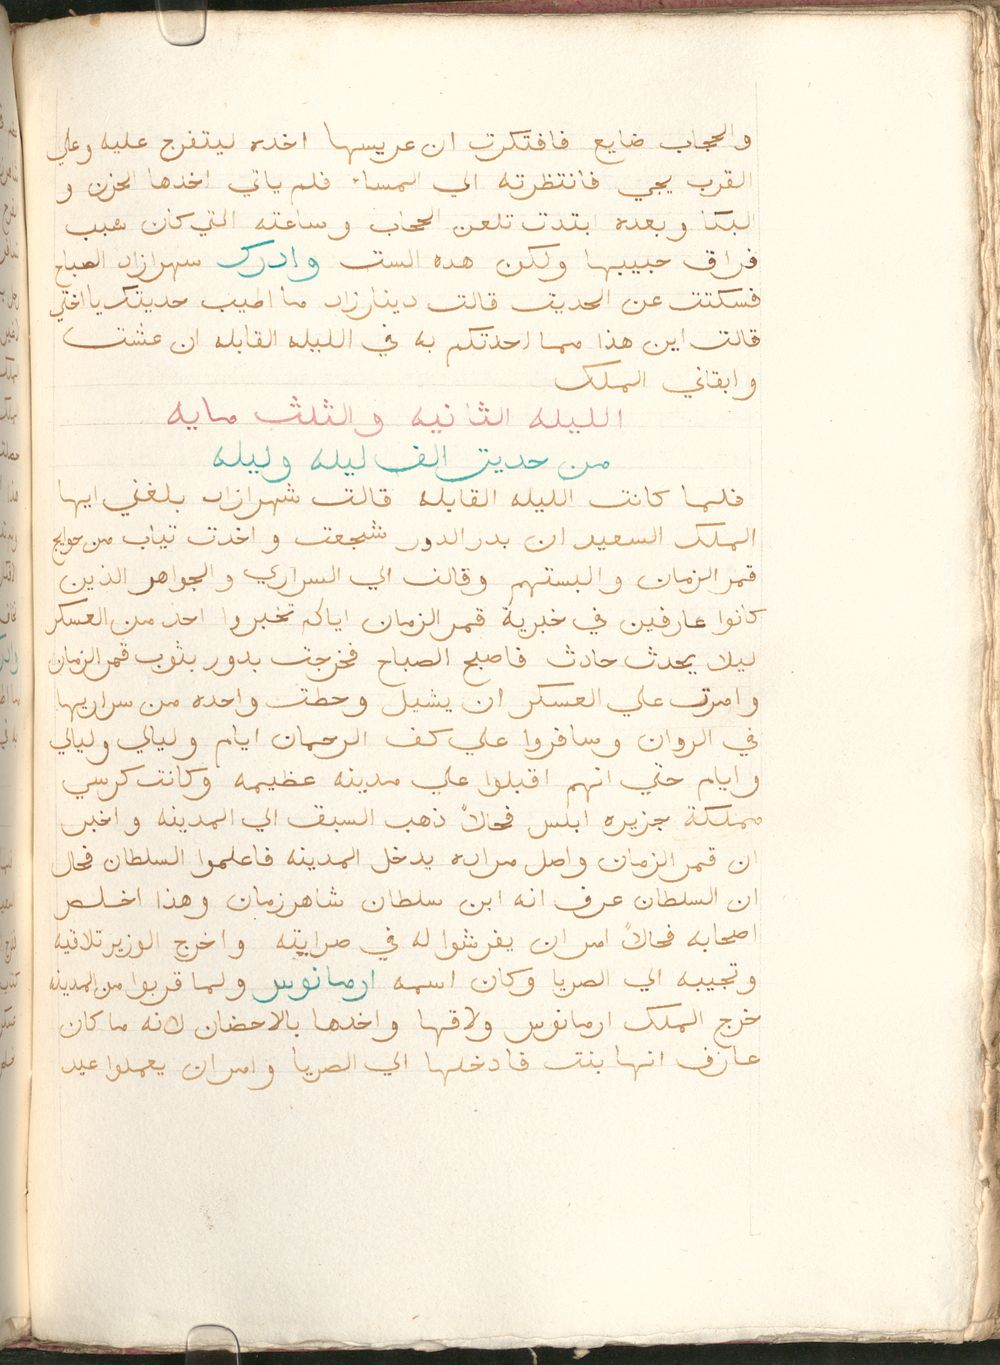 والحجاب ضايع فافتكرت ان عريسها اخده ليتفرج عليه وعلي
القرب يجي فانتظرته الي المساء فلم ياتي اخدها الحزن و
البكا وبعده ابتدت تلعن الحجاب وساعته التي كان سبب
فراق حبيبها ولكن هده الست وادرك سهرازاد الصباح
فسكتت عن الحديت قالت دينارزاد ما اطيب حديتك يا اختي
قالت اين هذا مما احدتكم به في الليله القابله ان عشت
وابقاني الملك
الليله الثانيه والثلث مايه
من حديت الف ليله وليله
فلما كانت الليله القابله قالت شهرازاد بلغني ايها
الملك السعيد ان بدر الدور شجعت واخدت تياب من حوايج
قمر الزمان والبستهم وقالت الي السراري والجواهر الذين
كانوا عارفين في خبرية قمر الزمان اياكم تخبروا احد من العسكر
ليلا يحدث حادث فاصبح الصباح فخرجت بدور بثوب قمر الزمان
وامرت علي العسكر ان يشيل وحطت واحده من سراريها
في الروان وسافروا علي كف الرحمان ايام وليالي وليالي
وايام حتي انهم اقبلوا علي مدينه عظيمه وكانت كرسي
مملكة جزيره ابلس فحالاً ذهب السبق الي المدينه واخبر
ان قمر الزمان واصل مراده يدخل المدينه فاعلموا السلطان فحال
ان السلطان عرف انه ابن سلطان شاهرزمان وهذا اخلص
اصحابه فحالاً امر ان يفرشوا له في صرايته واخرج الوزير تلاقيه
وتجيبه الي الصريا وكان اسمه ارمانوس ولما قربوا من المدينه
خرج الملك ارمانوس ولاقها واخدها بالاحضان لانه ما كان
عارف انها بنت فادخلها الي الصريا وامر ان يعملوا عيد